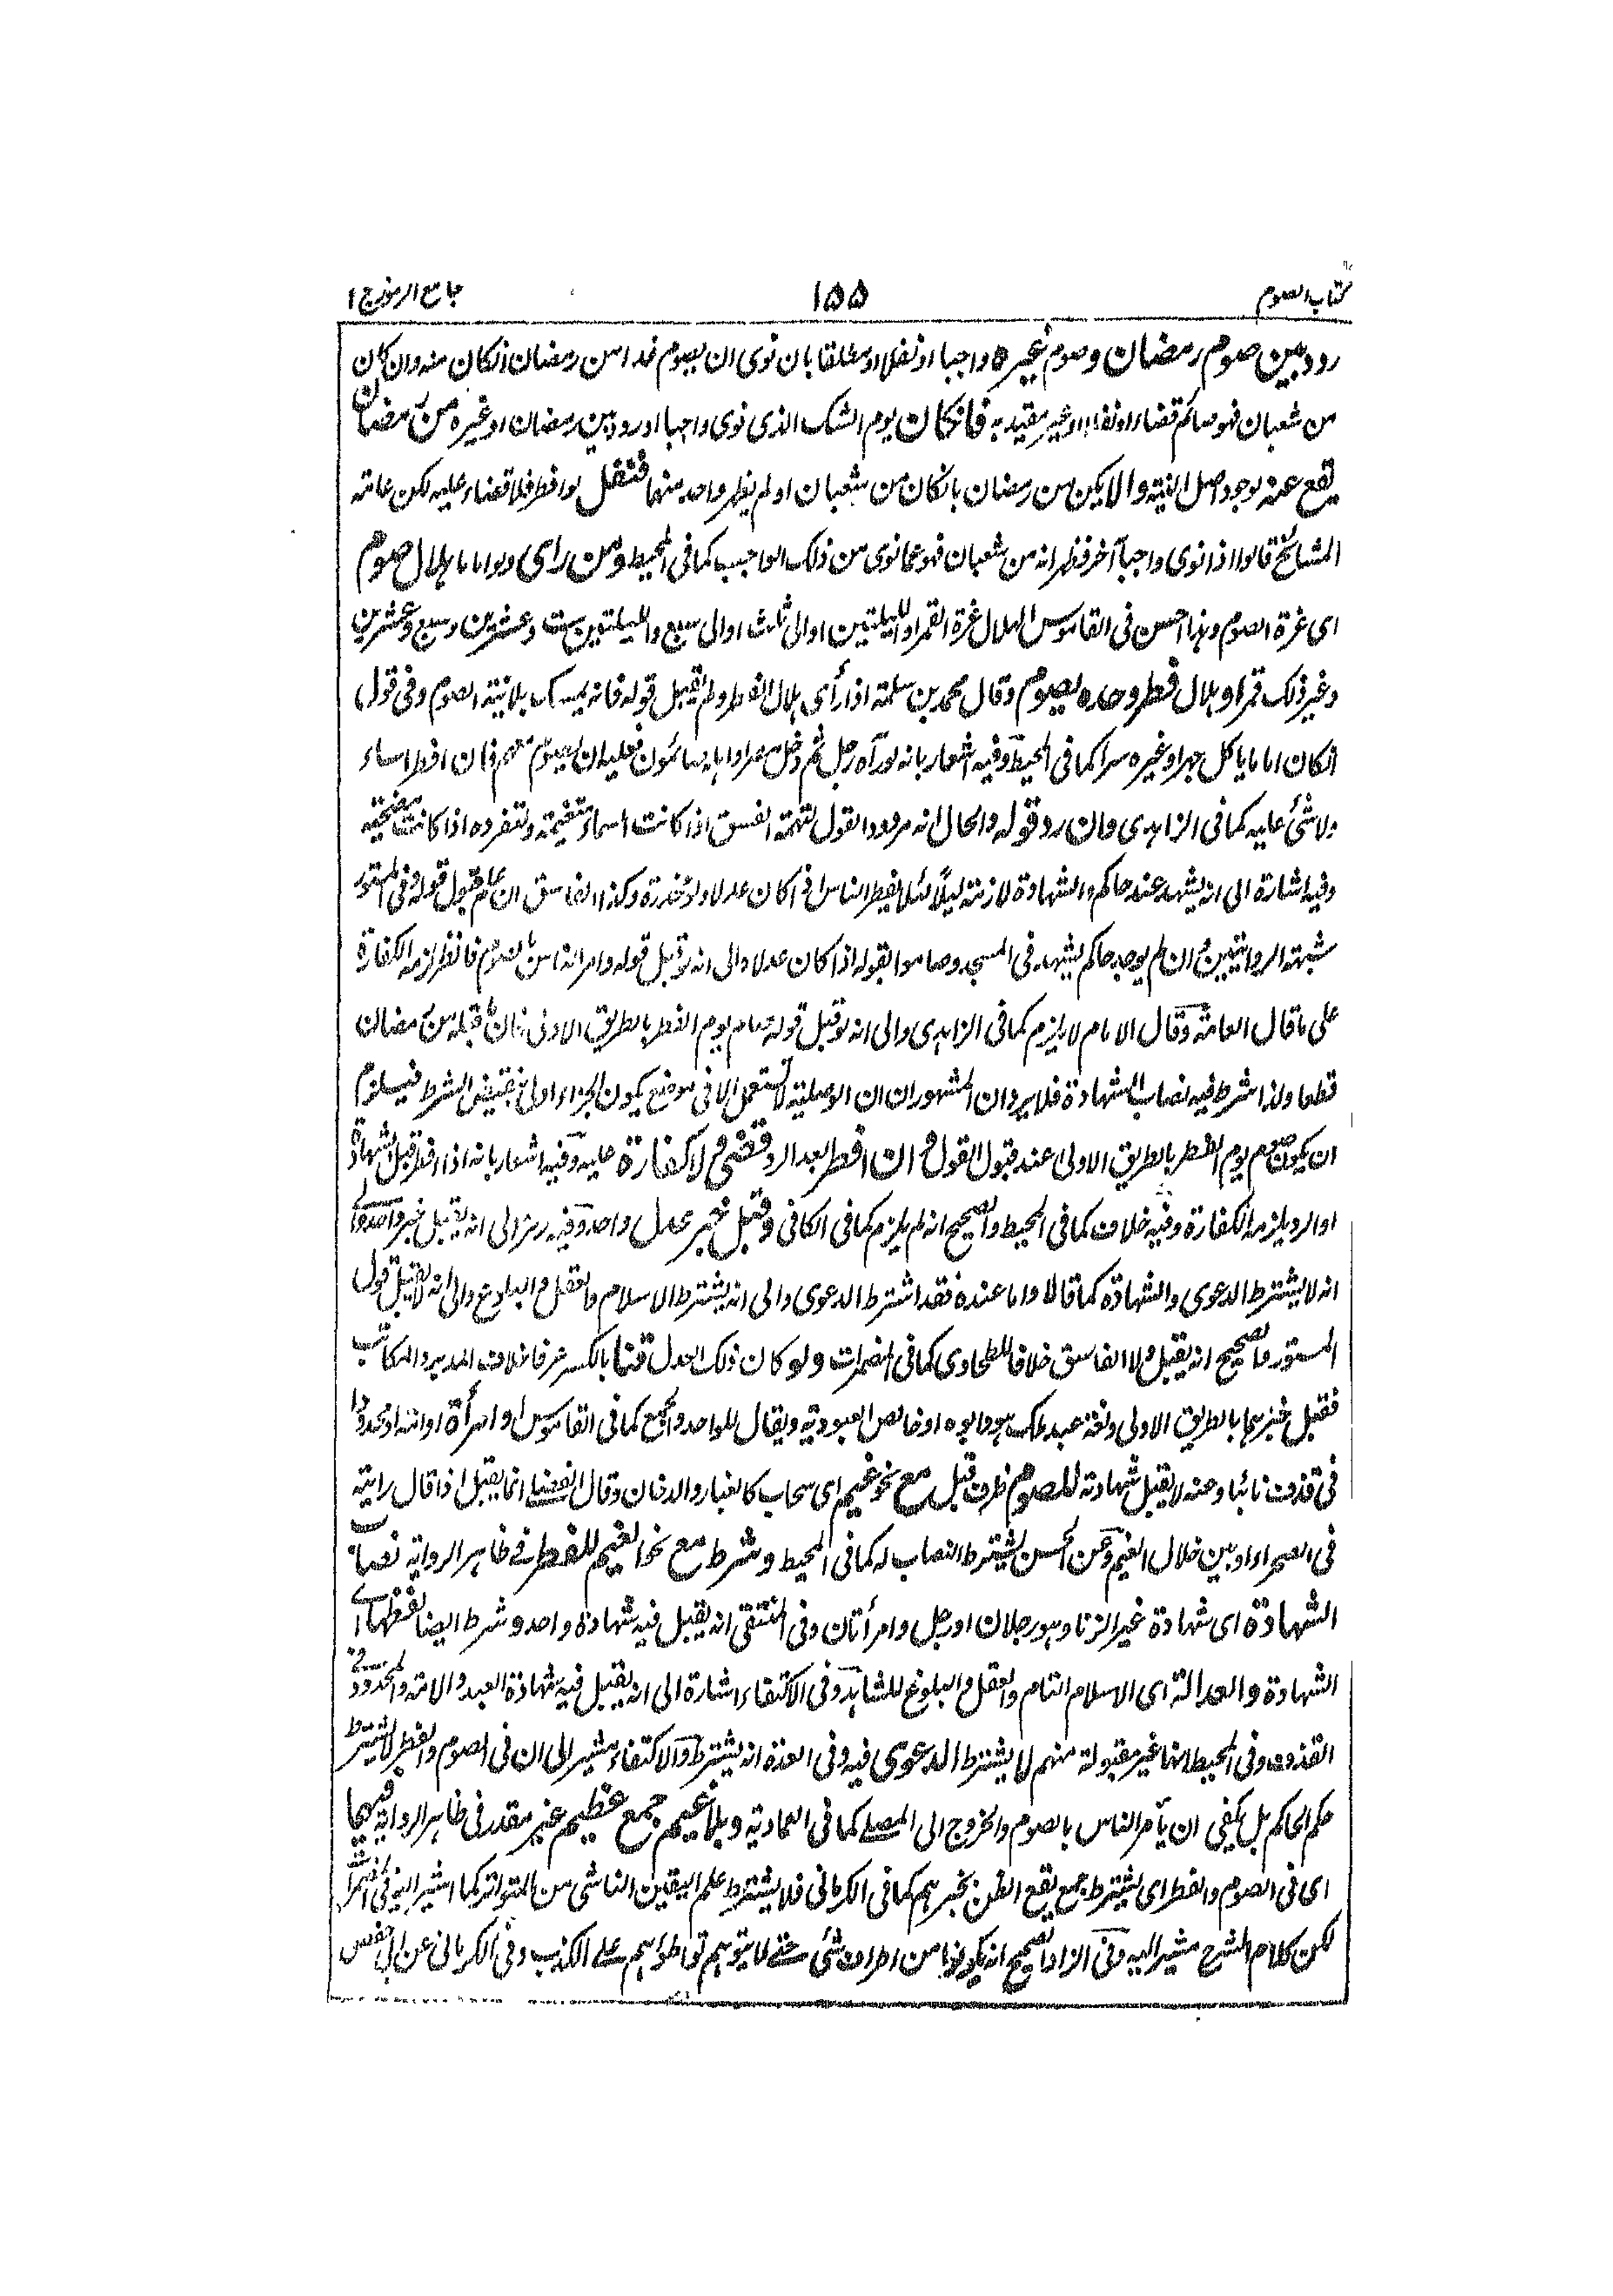 كتاب الصوم ١٥٥ جامع الرموز ج ١
ردد بين صوم رمضان وصوم غيره واجبا او نفلا او مطلقا بان نوى ان يصوم غدا من رمضان انكان منه وان كان
من شعبان فهو صائم قضاء او نفلا او غير مقيد به فانكان يوم الشك الذى نوى واجبا او ردد بين رمضان او غيره من رمضان
يقع عنه لوجود اصل النية والا يكن من رمضان بانكان من شعبان او لم يظهر واحد منهما فتنفل لو افطر فلا قضاء عليه لكن عامة
المشائخ قالوا اذا نوى واجبا آخر فظهر انه من شعبان فهو عما نوى من ذلك الواجب كما فى المحيط ومن راى ولو اماما هلال صوم
اى غرة الصوم وهذا احسن فى القاموس الهلال غرة القمر او لليلتين او الى ثلث او الى سبع والليلتين ست وعشرين وسبع وعشرين
وغير ذلك قمر او هلال فطر وحده يصوم وقال محمد بن سلمة اذا رأى هلال الفطر ولم يقبل قوله فانه يمسك بلا نية الصوم وفى قول
انكان اماما ياكل جهرا وغيره سرا كما فى المحيط وفيه اشعار بانه لو رآه رجل ثم دخل مصرا واهله صائمون فعليه ان يصوم معهم فان افطر اساء
ولا شئ عليه كما فى الزاهدى وان رد قوله والحال انه مردود القول لتهمة الفسق اذا كانت السماء متغيمة ولتفرده اذا كانت مصحية
وفيه اشارة الى انه يشهد عند حاكم والشهادة لازمة ليلا لئلا يفطر الناس اذا كان عدلا ولو مخدرة وكذا الفاسق ان علم قبول قوله وفى المستور
شبهة الروايتين وان لم يوجد حاكم يشهد فى المسجد وصاموا بقوله اذا كان عدلا والى انه لو قبل قوله وامر الناس بالصوم فافطر لزمه الكفارة
على ما قال العامة وقال الامام لا يلزم كما فى الزاهدى والى انه لو قبل قوله صام يوم الفطر بالطريق الاولى فان قبله من رمضان
قطعا ولذا شرط فيه نصاب الشهادة فلا يرد ان المشهور ان ان الوصلية لا تستعمل الا فى موضع يكون الجزاء اولى بنقيض الشرط فيلزم
ان يكون صوم يوم الفطر بالطريق الاولى عند قبول القول وان افطر بعد الرد قضى ولا كفارة عليه وفيه اشعار بانه اذا افطر قبل الشهادة
او الرد يلزمه الكفارة وفيه خلاف كما فى المحيط والصحيح انه لم يلزم كما فى الكافى وقبل خبر عدل واحد وفيه رمز الى انه يقبل خبر واحد والى
انه لا يشترط الدعوى والشهادة كما قالا واما عنده فقد اشترط الدعوى والى انه يشترط الاسلام والعقل والبلوغ والى انه لا يقبل قول
المستور والصحيح انه يقبل ولا الفاسق خلافا للطحاوى كما فى المضمرات ولو كان ذلك العدل قنا بالكسر عرفا خلاف المدبر والمكاتب
فقبل خبرهما بالطريق الاولى ولغة عبد ملك هو وابوه او خالص العبودية ويقال للواحد والجمع كما فى القاموس او امرأة او امة او محدودا
فى قذف تائبا وعنه لا يقبل شهادته للصوم ظرف قبل مع نحو غيم اى سحاب كالغبار والدخان وقال الفضلى انما يقبل اذا قال رايته
فى الصحراء او بين خلال الغيم وعن الحسن يشترط النصاب له كما فى المحيط وشرط مع نحو الغيم للفطر فى ظاهر الرواية نصاب
الشهادة اى شهادة غير الزنا وهو رجلان او رجل وامرأتان وفى المنتقى انه يقبل فيه شهادة واحد وشرط ايضا لفظها اى
الشهادة والعدالة اى الاسلام التام والعقل والبلوغ للشاهد وفى الاكتفاء اشارة الى انه يقبل فيه شهادة العبد والامة والمحدود فى
القذف وفى المحيط انها غير مقبولة منهم لا يشترط الدعوى فيه وفى العدة انه يشترط والاكتفاء مشير الى ان فى الصوم والفطر لا يشترط
حكم الحاكم بل يكفى ان يأمر الناس بالصوم والخروج الى المصلى كما فى العمادية وبلا غيم جمع عظيم غير مقدر فى ظاهر الرواية فيهما
اى فى الصوم والفطر اى يشترط جمع يقع الظن بخبرهم كما فى الكرمانى فلا يشترط علم اليقين الناشى من المتواتر كما اشير اليه فى المضمرات
لكن كلام الشرح مشير اليه وفى الزاد الصحيح انه يكونوا من اطراف شتى حتى لا يتوهم تواطؤهم على الكذب وفى الكرمانى عن ابى حفص